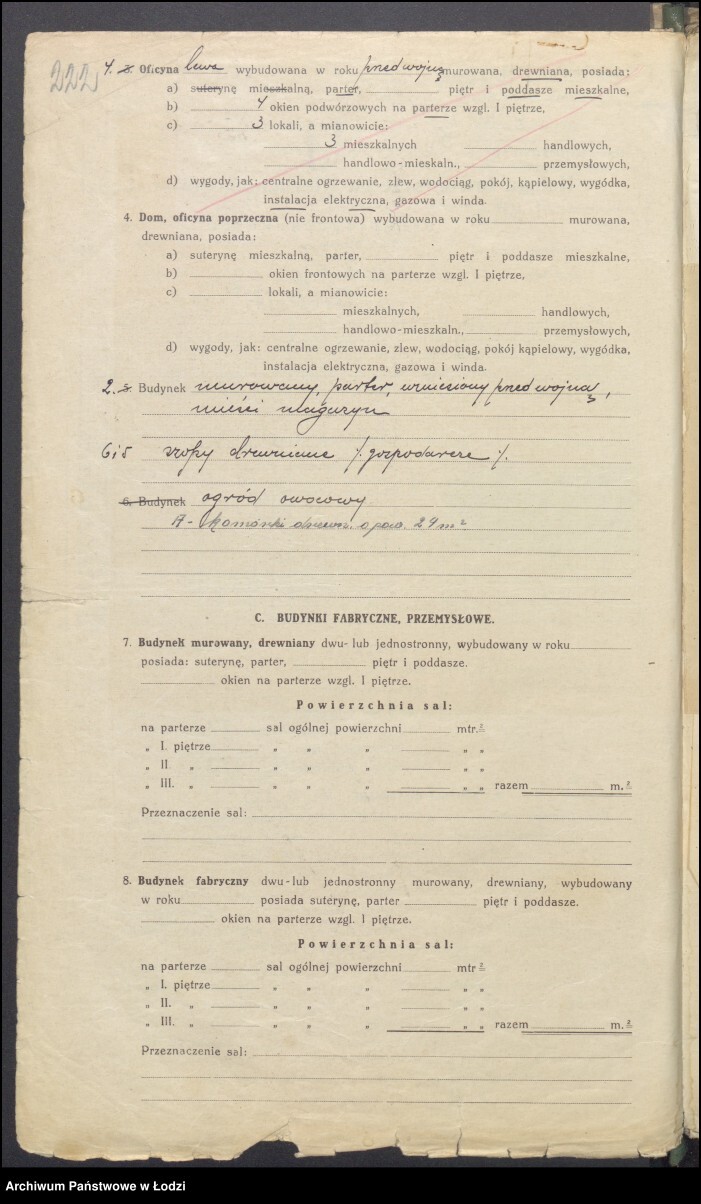 222
4. 3. Oficyna lewa wybudowana w roku przed wojną murowana, drewniana, posiada:
a) suterynę mieszkalną, parter, piętr i poddasze mieszkalne,
b) 4 okien podwórzowych na parterze wzgl. I piętrze,
c) 3 lokali, a mianowicie:
3 mieszkalnych handlowych,
handlowo-mieskaln., przemysłowych,
d) wygody, jak: centralne ogrzewanie, zlew, wodociąg, pokój, kąpielowy, wygódka,
instalacja elektryczna, gazowa i winda.
4. Dom, oficyna poprzeczna (nie frontowa) wybudowana w roku murowana,
drewniana, posiada:
a) suterynę mieszkalną, parter, piętr i poddasze mieszkalne,
b) okien frontowych na parterze wzgl. I piętrze,
c) lokali, a mianowicie:
mieszkalnych, handlowych,
handlowo-mieszkaln., przemysłowych,
d) wygody, jak: centralne ogrzewanie, zlew, wodociąg, pokój kąpielowy, wygódka,
instalacja elektryczna, gazowa i winda.
2. 5. Budynek murowany, parter, wzniesiony przed wojną,
mieści magazyn
6 i 5 szopy drewniane /. gospodarcze ./.
6. Budynek ogród owocowy
A - Komórki drewn. o pow. 24 m²
C. BUDYNKI FABRYCZNE, PRZEMYSŁOWE.
7. Budynek murowany, drewniany dwu- lub jednostronny, wybudowany w roku
posiada: suterynę, parter, piętr i poddasze.
okien na parterze wzgl. I piętrze.
Powierzchnia sal:
na parterze sal ogólnej powierzchni mtr.²
„ I. piętrze „ „ „ „ „
„ II „ „ „ „ „ „
„ III. „ „ „ „ „ „ razem m.²
Przeznaczenie sal:
8. Budynek fabryczny dwu-lub jednostronny murowany, drewniany, wybudowany
w roku posiada suterynę, parter piętr i poddasze.
okien na parterze wzgl. I piętrze.
Powierzchnia sal:
na parterze sal ogólnej powierzchni mtr²
„ I. piętrze „ „ „ „ „
„ II. „ „ „ „ „ „
„ III. „ „ „ „ „ „ razem m.²
Przeznaczenie sal:
Archiwum Państwowe w Łodzi